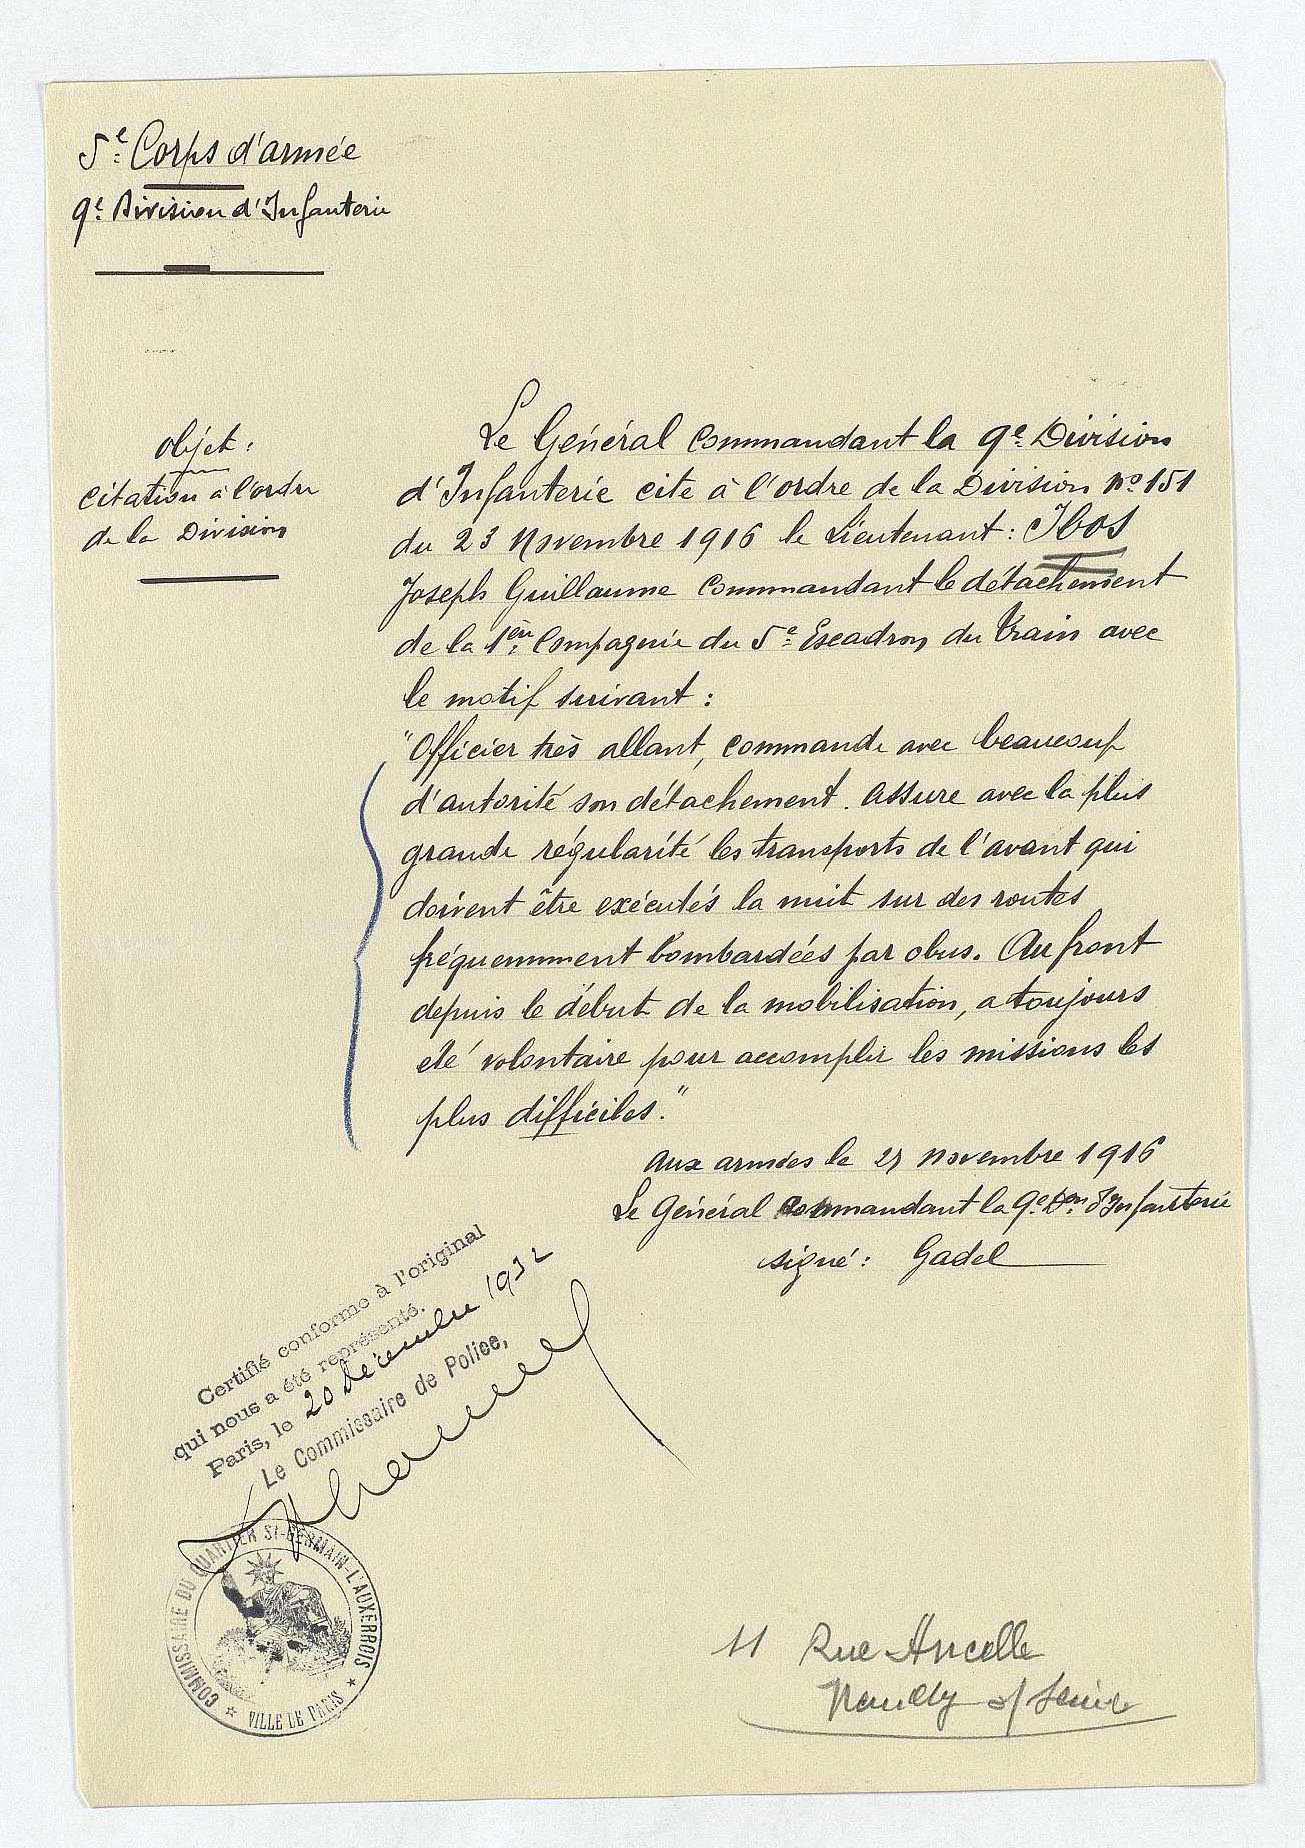 5e Corps d'armée
9e Division d'Infanterie
Objet:
Citation à l'ordre
de la Division
Le Général Commandant la 9e Division
d'Infanterie cite à l'ordre de la Division No 151
du 23 Novembre 1916 le Lieutenant: Ibos
Joseph Guillaume Commandant le détachement
de la 1ère Compagnie du 5e Escadron du Train avec
le motif suivant:
"Officier très allant, commande avec beaucoup
d'autorité son détachement. Assure avec la plus
grande régularité les transports de l'avant qui
doivent être exécutés la nuit sur des routes
fréquemment bombardées par obus. Au front
depuis le début de la mobilisation, a toujours
été volontaire pour accomplir les missions les
plus difficiles."
Aux armées le novembre 1916
Le Général Commandant la 9e Don d'Infanterie
signé: Gadel
Certifié conforme à l'original
qui nous a été représenté.
Paris, le 20 décembre 1932
Le Commissaire de Police,
COMMISSAIRE DU QUARTIER St-GERMAIN-L'AUXERROIS
VILLE DE PARIS
11 Rue Ancelle
Neuilly s/ Seine